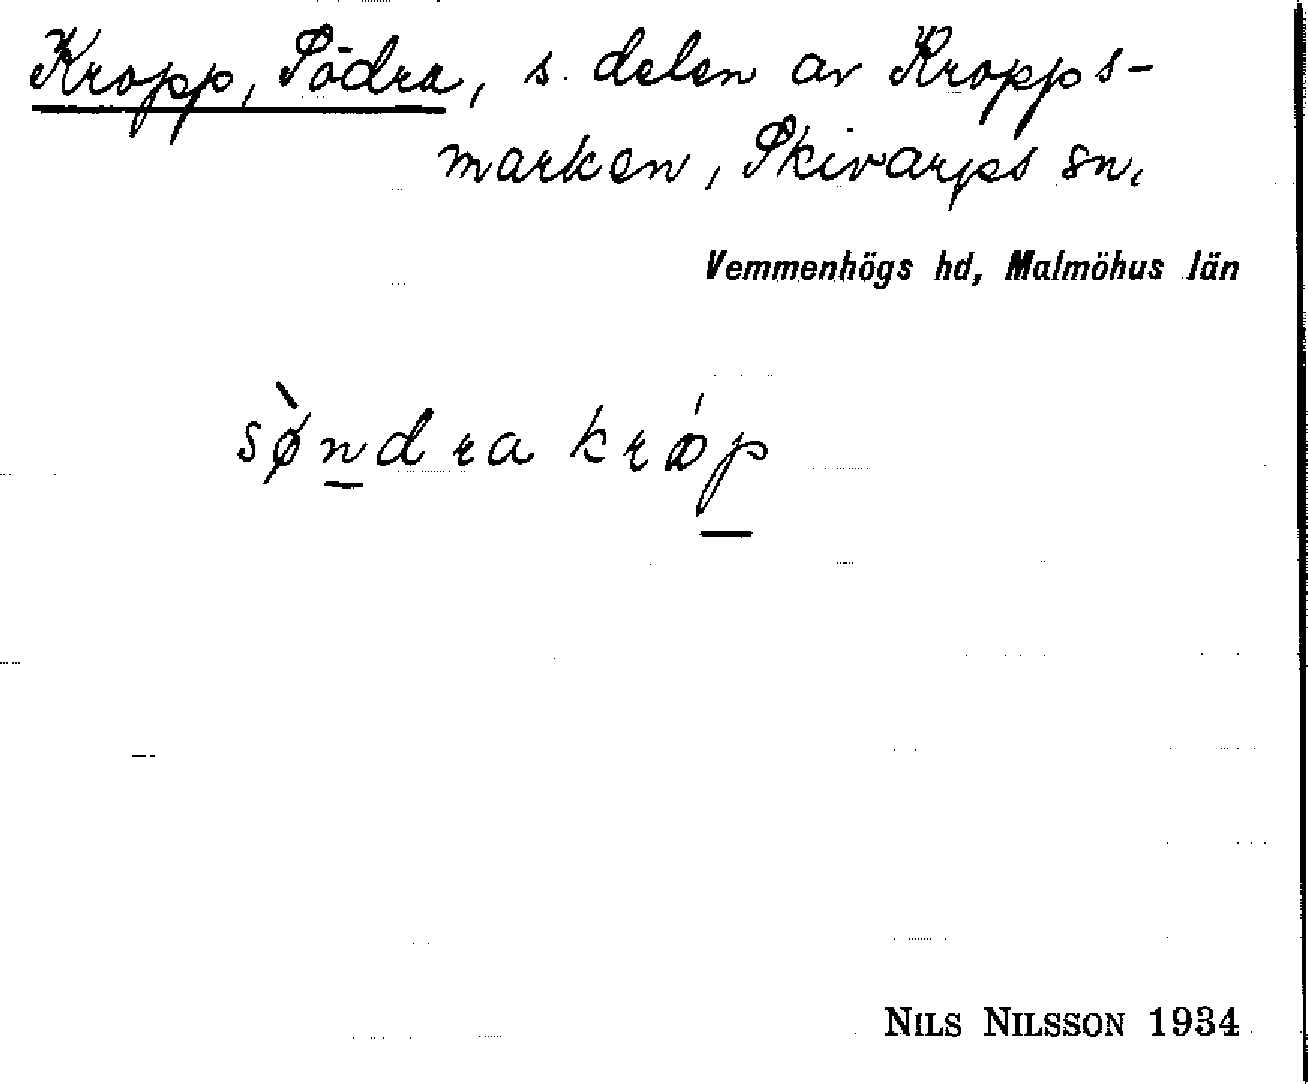 Kropp, Södra, s. delen av Kropps-
marken, Skivarps sn.
Vemmenhögs hd, Malmöhus län
sø̀ndra krǿp
NILS NILSSON 1934